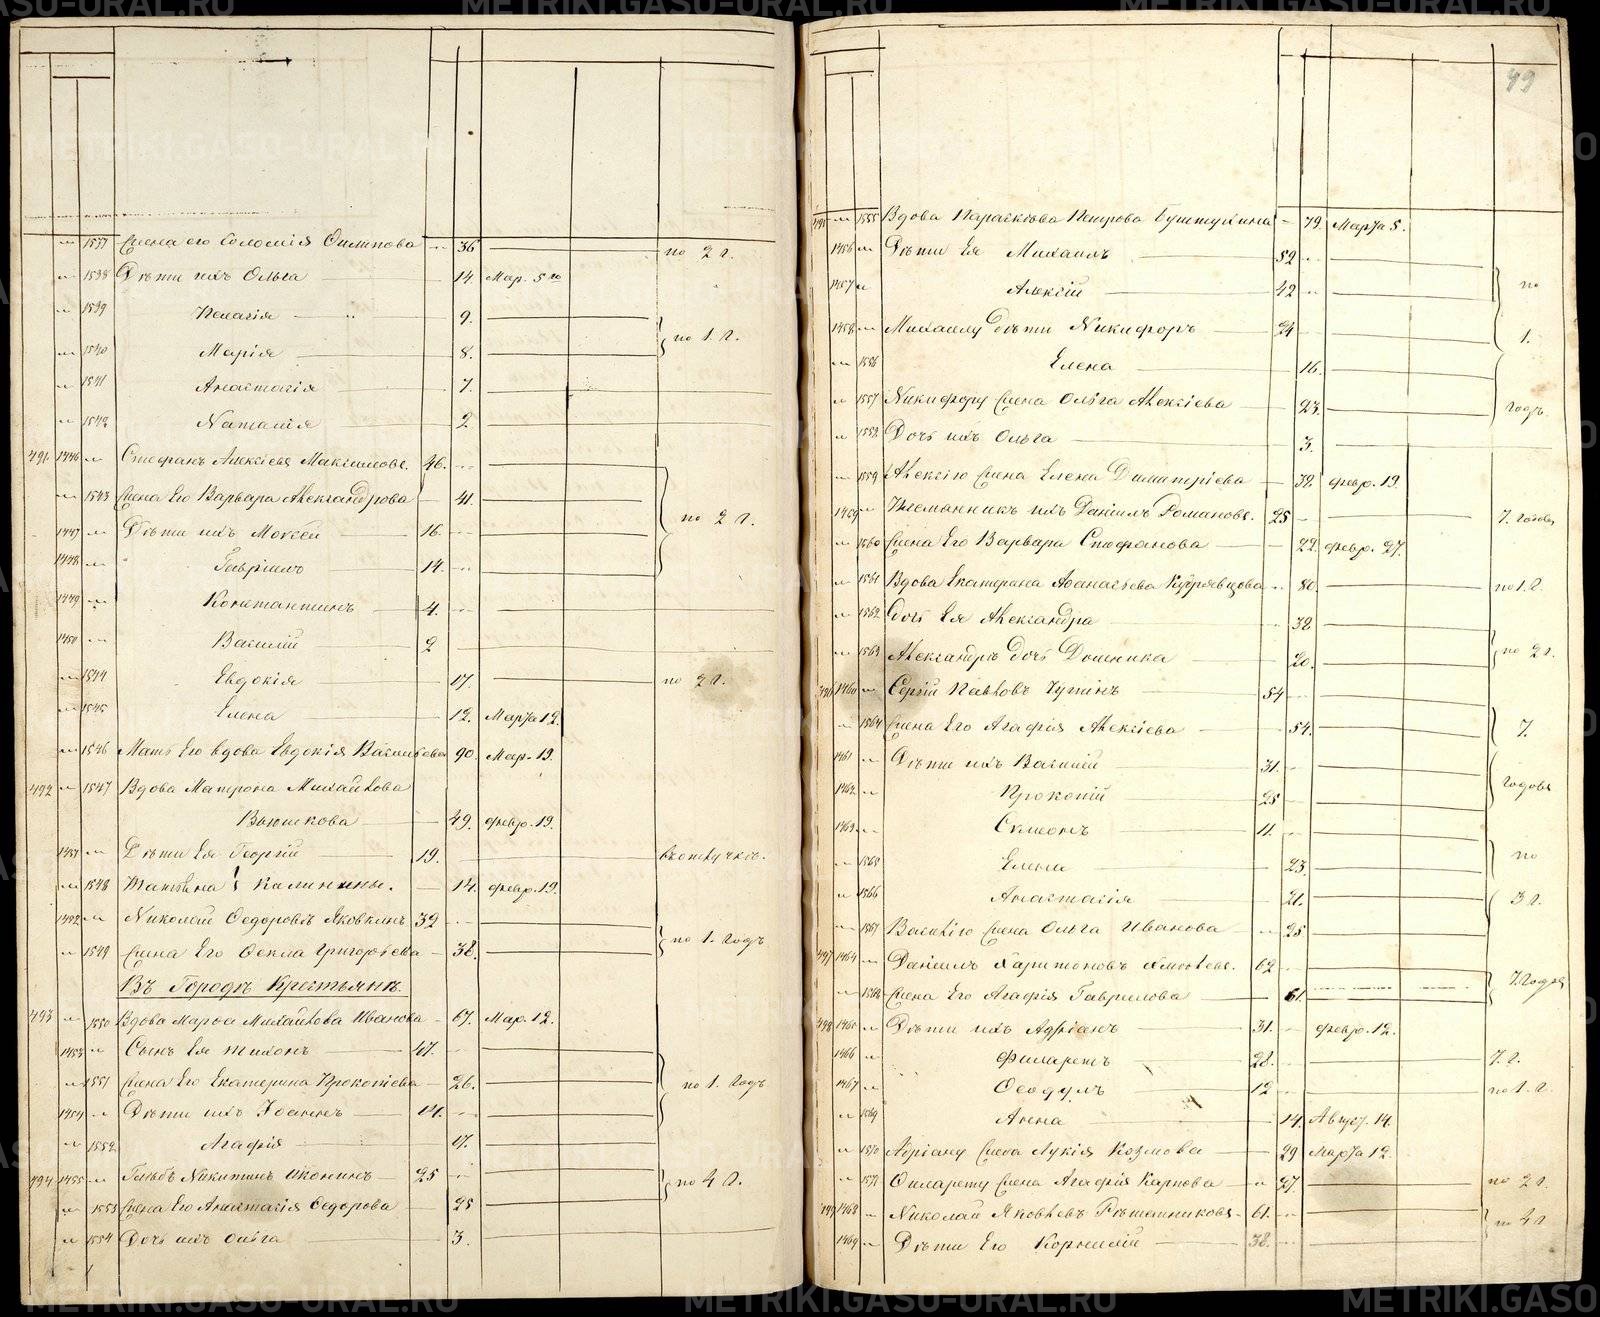 1537 Жена его Соломія Филипова 36 по 2 г.
1538 Дѣти ихъ Ольга 14. Мар. 5го
1539 Пелагія 9.
1540 Марія 8. по 1. г.
1541 Анастасія 7.
1542 Наталія 2
491. 1446 Стефанъ Алексѣевъ 46.
1543 Жена Его Варвара Александрова 41.
1447 Дѣти ихъ Моѵсей 16. по 2 г.
1448 Гавріилъ 14.
1449 Константинъ 4.
1450 Василій 2
1544 Евдокія 17. по 2 г.
1545 Елена 12. Марта 12.
1546 Мать Его вдова Евдокія Васильева 90. Мар. 19.
492 1547 Вдова Матрона Михайлова
49. февр. 19.
1451 Дѣти Ея Георгій 19.
1548 Татьяна Калинины. 14. февр. 19.
1452 Николай Ѳедоровъ Яковкинъ 39
1549 Жена Его Ѳекла Григорьева 38. по 1. годъ
Въ Городкѣ Крестьянъ.
493 1550 Вдова Марѳа Михайлова Иванова 67. Мар. 12.
1453 Сынъ Ея Тихонъ 47.
1551 Жена Его Екатерина Прокопіева 26. по 1. годъ
1454 Дѣти ихъ Іоаннъ 14.
1552 Агафія 17.
494 1455 Глѣбъ Никитинъ Иконинъ 25 по 4 г.
1553 Жена Его Анастасія Ѳедорова 25
1554 Дочь ихъ Ольга 3.
49
495 1555 Вдова Параскева Петрова 79. Марта 5.
1456 Дѣти Ея Михаилъ 52
1457 Алексій 42 по
1458 Михаилу дѣти Никифоръ 24 1.
1556 Елена 16.
1557 Никифору Жена Ольга Алексіева 23. годъ
1558 Дочь ихъ Ольга 3.
1559 Алексію Жена Елена Димитріева 32 февр. 19.
1459 Племянникъ ихъ Даніилъ Романовъ. 25 7. годовъ
1560 Жена Его Варвара Стефанова 22. февр. 27.
1561 Вдова Екатерина Афанасьева Кудрявцова 80. по 1. г.
1562 дочь Ея Александра 32
1563 Александры дочь Домника 20. по 2 г.
496 1460 Сергій Павловъ 54
1564 Жена Его Агафія Алексіева 54. 7.
1461 Дѣти ихъ Василій 31.
1462 Прокопій 25 годовъ
1463 Симеонъ 11.
1565 Елена 23. по
1566 Анастасія 21. 3 г.
1567 Василію Жена Ольга Иванова 25
497 1464 Даніилъ Харитоновъ 62
1568 Жена Его Агафія Гаврилова 61. 7. годъ
498 1465 Дѣти ихъ Адріанъ 31. февр. 12.
1466 Филаретъ 28. 7. г.
1467 Ѳеодулъ 12 по 1. г.
1569 Анна 14. Август. 14.
1570 Адріану Жена Лукія Козмова 29 Марта 12.
1571 Филарету Жена Агафія Карпова 27. по 2 г.
499 1468 Николай Яковлевъ Рѣшетниковъ 61. по 4 г.
1469 Дѣти Его Корнилій 38.